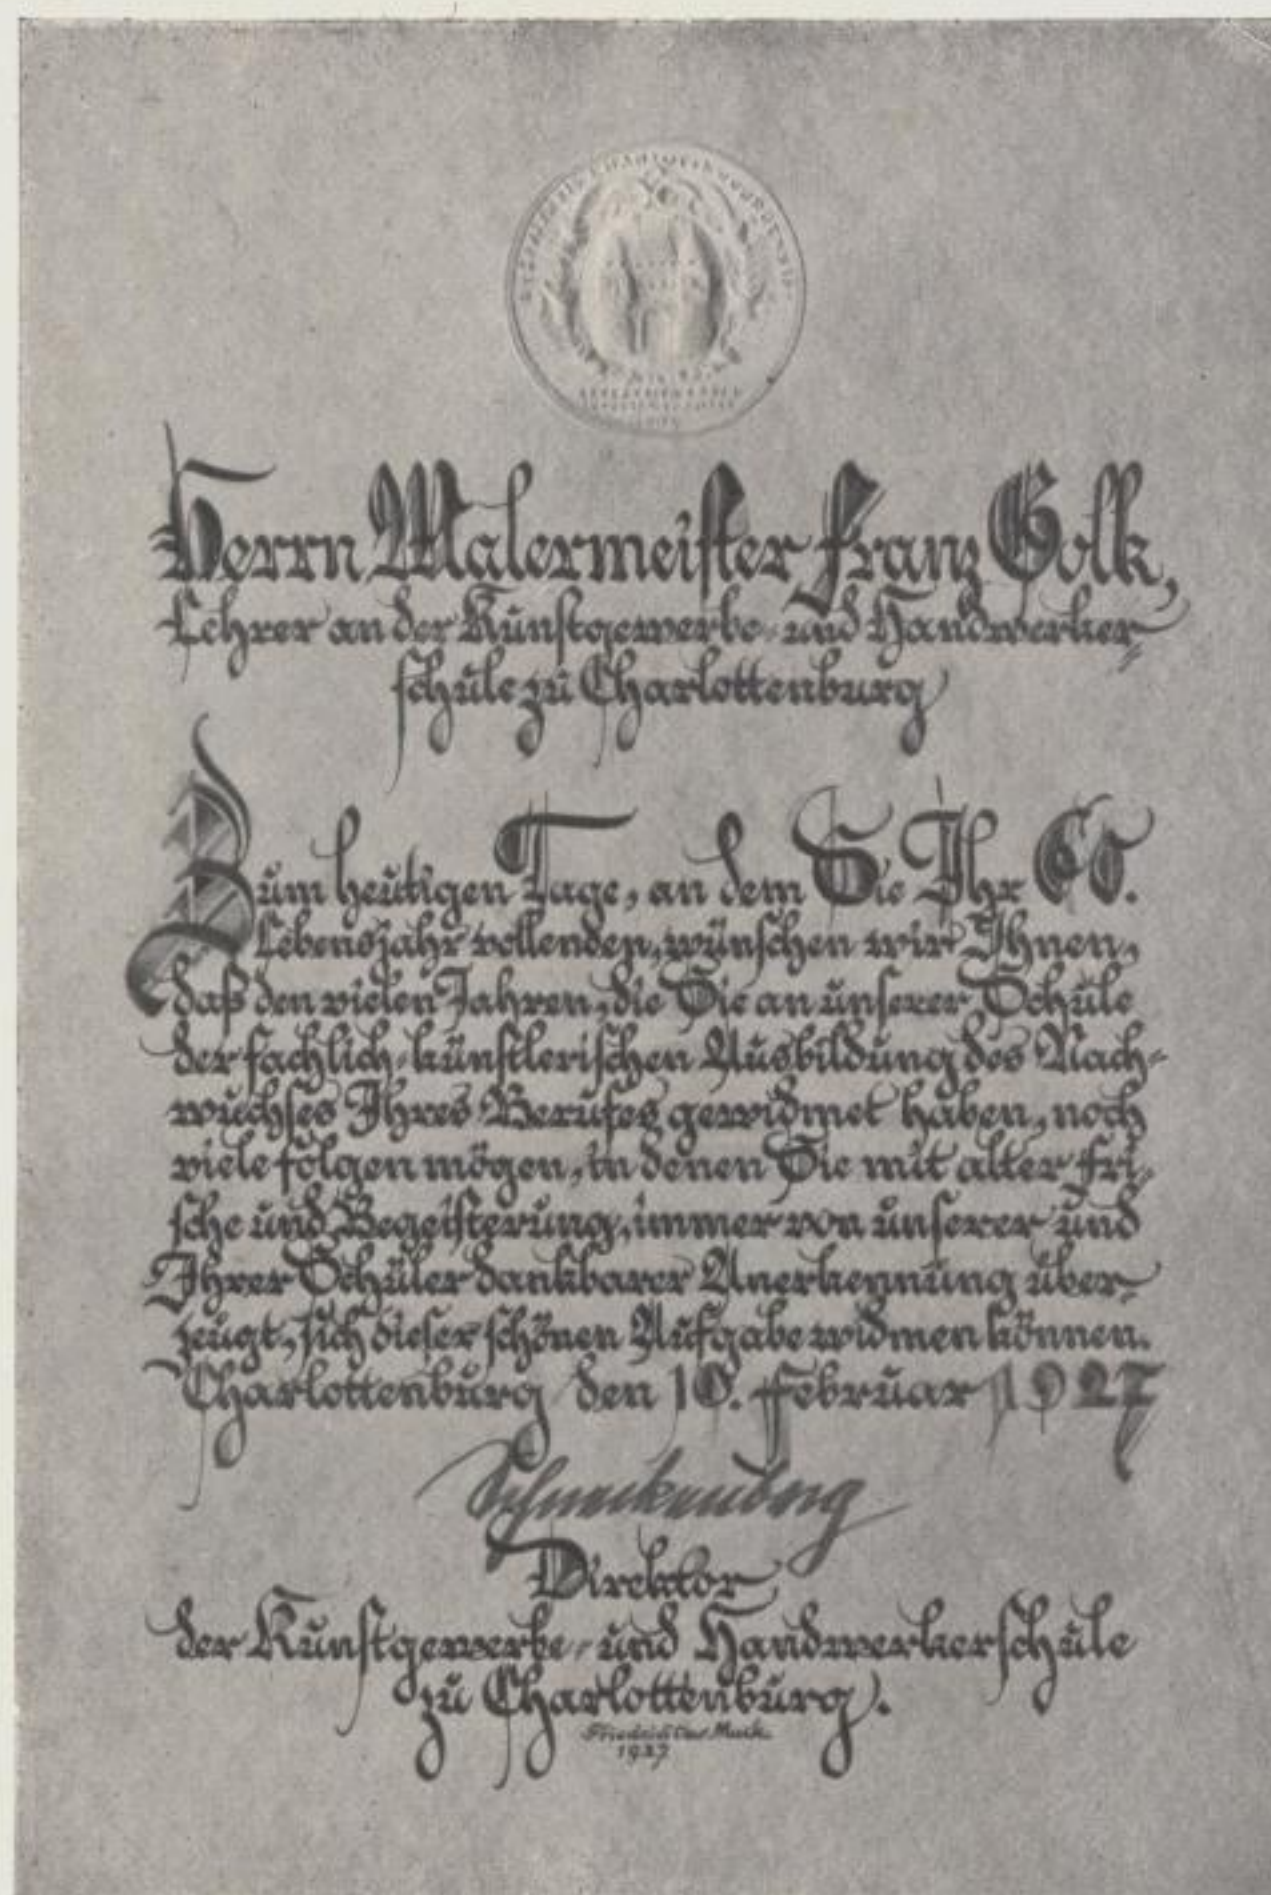 Herrn Malermeister Franz Golk,
Lehrer an der Kunstgewerbe- und Handwerker-
schule zu Charlottenburg
Zum heutigen Tage, an dem Sie Ihr 60.
Lebensjahr vollenden, wünschen wir Ihnen,
daß den vielen Jahren, die Sie an unserer Schule
der fachlich-künstlerischen Ausbildung des Nach-
wuchses Ihres Berufes gewidmet haben, noch
viele folgen mögen, in denen Sie mit alter Fri-
sche und Begeisterung, immer von unserer und
Ihrer Schüler dankbarer Anerkennung über-
zeugt, sich dieser schönen Aufgabe widmen können.
Charlottenburg den 10. Februar 1927
Schneckenberg
Direktor
der Kunstgewerbe- und Handwerkerschule
zu Charlottenburg.
Friedrich Muck
1927